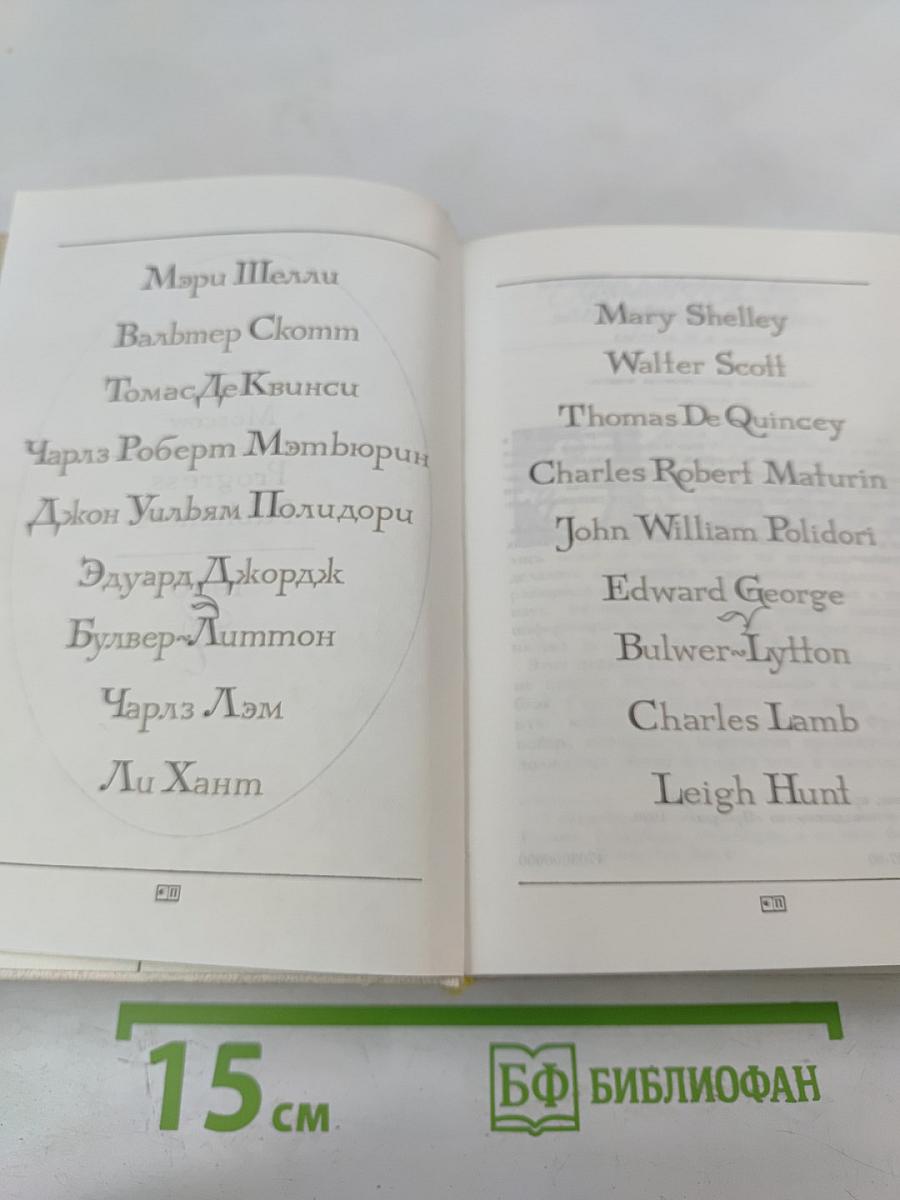 Мэри Шелли
Вальтер Скотт
Томас Де Квинси
Чарлз Роберт Мэтьюрин
Джон Уильям Полидори
Эдуард Джордж
Булвер~Литтон
Чарлз Лэм
Ли Хант
Mary Shelley
Walter Scott
Thomas De Quincey
Charles Robert Maturin
John William Polidori
Edward George
Bulwer~Lytton
Charles Lamb
Leigh Hunt
15 см
БФ БИБЛИОФАН